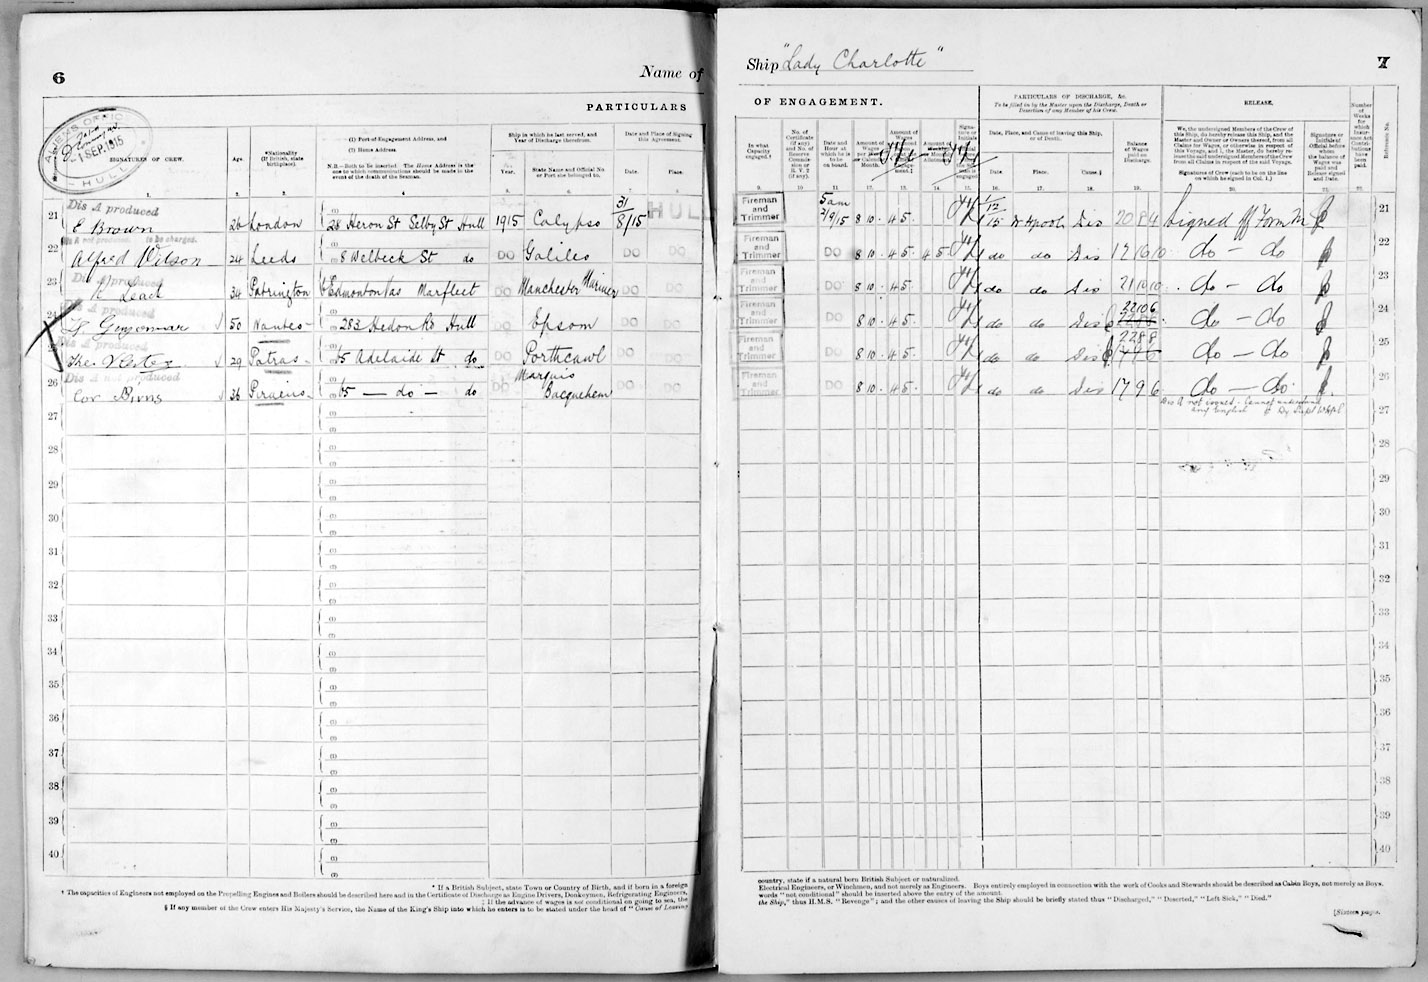 6
Name of
Ship "Lady Charlotte"
7
PARTICULARS
OF ENGAGEMENT.
PARTICULARS OF DISCHARGE, &c.
To be filled in by the Master upon the Discharge, Death or
Desertion of any Member of his Crew.
RELEASE.
1 SEP. 1915
HULL
SIGNATURES OF CREW.
Age.
*Nationality
(If British, state
birthplace).
(1) Port of Engagement Address, and
(2) Home Address.
N.B.—Both to be inserted. The Home Address is the
one to which communications should be made in the
event of the death of the Seaman.
Ship in which he last served, and
Year of Discharge therefrom.
Year.
State Name and Official No.
or Port she belonged to.
Date and Place of Signing
this Agreement.
Date.
Place.
In what
Capacity
engaged.†
No. of
Certificate
(if any)
and No. of
Reserve
Commis-
sion or
R. V. 2
(if any).
Date and
Hour at
which he is
to be
on board.
Amount of
Wages
per
Calendar
Month.
Date, Place, and Cause of leaving this Ship,
or of Death.
Date.
Place.
Cause.§
Balance
of Wages
paid on
Discharge.
We, the undersigned Members of the Crew of
this Ship, do hereby release this Ship, and the
Master and Owner or Owners thereof, from all
Claims for Wages, or otherwise in respect of
this Voyage, and I, the Master, do hereby re-
lease the said undersigned Members of the Crew
from all Claims in respect of the said Voyage.
Signatures of Crew (each to be on the line
on which he signed in Col. 1.)
Signature or
Initials of
Official before
whom
the balance of
Wages was
paid and
Release signed
and Date.
Number
of
Weeks
for
which
Insur-
ance Act
Contri-
butions
have
been
paid.
Reference No.
21 Dis A produced
E Brown 26 London 28 Heron St Selby St Hull 1915 Calypso 31/8/15 HULL Fireman and Trimmer 5am 2/9/15 8 10 . 4 5 . 1/12/15 Dis 20 8 4 Signed off Form M 21
22 Dis A not produced to be charged.
Alfred Wilson 24 Leeds 8 Welbeck St do DO Galileo DO DO Fireman and Trimmer DO 8 10 . 4 5 . 4 5 0 do do Dis 12 16 10 do — do 22
23 Dis A produced
Lead 34 Patrington Edmonton Tas Marfleet DO Manchester Mariner DO DO Fireman and Trimmer DO 8 10 . 4 5 . do do Dis 21 10 10 do — do 23
24 50 Nantes 283 Hedon Rd Hull DO Epsom DO DO Fireman and Trimmer DO 8 10 . 4 5 . do do Dis 22 10 6 do — do 24
25 Dis A produced
29 Patras 15 Adelaide St do DO Porthcawl DO DO Fireman and Trimmer DO 8 10 . 4 5 . do do Dis 22 8 8 do — do 25
26 Dis A not produced
36 Piraeus 15 — do — do DO Marquis Bacquehem DO DO Fireman and Trimmer DO 8 10 . 4 5 . do do Dis 17 9 6 do — do 26
Dis A not issued. Cannot understand
any English
27
28
29
30
31
32
33
34
35
36
37
38
39
40
* If a British Subject, state Town or Country of Birth, and if born in a foreign
† The capacities of Engineers not employed on the Propelling Engines and Boilers should be described here and in the Certificate of Discharge as Engine Drivers, Donkeymen, Refrigerating Engineers,
‡ If the advance of wages is not conditional on going to sea, the
§ If any member of the Crew enters His Majesty's Service, the Name of the King's Ship into which he enters is to be stated under the head of "Cause of Leaving
country, state if a natural born British Subject or naturalized.
Electrical Engineers, or Winchmen, and not merely as Engineers. Boys entirely employed in connection with the work of Cooks and Stewards should be described as Cabin Boys, not merely as Boys.
words "not conditional" should be inserted above the entry of the amount.
the Ship," thus H.M.S. "Revenge"; and the other causes of leaving the Ship should be briefly stated thus "Discharged," "Deserted," "Left Sick," "Died."
[Sixteen pages.